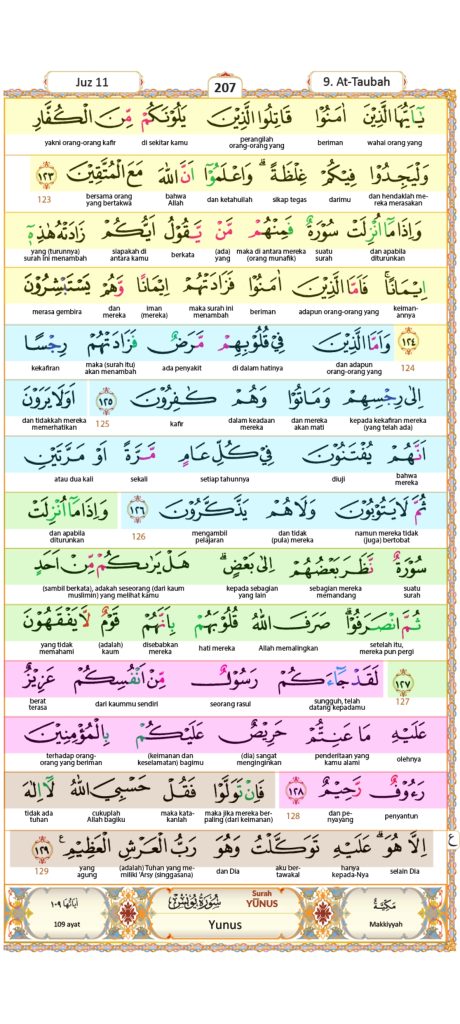 Juz 11
207
9. At-Taubah
يٰٓاَيُّهَا الَّذِيْنَ اٰمَنُوْا قَاتِلُوا الَّذِيْنَ يَلُوْنَكُمْ مِّنَ الْكُفَّارِ
wahai orang yang beriman perangilah orang-orang yang di sekitar kamu yakni orang-orang kafir
وَلْيَجِدُوْا فِيْكُمْ غِلْظَةً ۗ وَاعْلَمُوْٓا اَنَّ اللّٰهَ مَعَ الْمُتَّقِيْنَ ١٢٣
dan hendaklah me-reka merasakan darimu sikap tegas dan ketahuilah bahwa Allah bersama orang yang bertakwa 123
وَاِذَا مَآ اُنْزِلَتْ سُوْرَةٌ فَمِنْهُمْ مَّنْ يَّقُوْلُ اَيُّكُمْ زَادَتْهُ هٰذِهٖٓ
dan apabila diturunkan suatu surah maka di antara mereka (orang munafik) (ada) yang berkata siapakah di antara kamu yang (turunnya) surah ini menambah
اِيْمَانًا ۚ فَاَمَّا الَّذِيْنَ اٰمَنُوْا فَزَادَتْهُمْ اِيْمَانًا وَّهُمْ يَسْتَبْشِرُوْنَ
keiman-annya adapun orang-orang yang beriman maka surah ini menambah iman (mereka) dan mereka merasa gembira
١٢٤ وَاَمَّا الَّذِيْنَ فِيْ قُلُوْبِهِمْ مَّرَضٌ فَزَادَتْهُمْ رِجْسًا
124 dan adapun orang-orang yang di dalam hatinya ada penyakit maka (surah itu) akan menambah kekafiran
اِلٰى رِجْسِهِمْ وَمَاتُوْا وَهُمْ كٰفِرُوْنَ ١٢٥ اَوَلَا يَرَوْنَ
kepada kekafiran mereka (yang telah ada) dan mereka akan mati dalam keadaan mereka kafir 125 dan tidakkah mereka memerhatikan
اَنَّهُمْ يُفْتَنُوْنَ فِيْ كُلِّ عَامٍ مَّرَّةً اَوْ مَرَّتَيْنِ
bahwa mereka diuji setiap tahunnya sekali atau dua kali
ثُمَّ لَا يَتُوْبُوْنَ وَلَا هُمْ يَذَّكَّرُوْنَ ١٢٦ وَاِذَا مَآ اُنْزِلَتْ
namun mereka tidak (juga) bertobat dan tidak (pula) mereka mengambil pelajaran 126 dan apabila diturunkan
سُوْرَةٌ نَّظَرَ بَعْضُهُمْ اِلٰى بَعْضٍۗ هَلْ يَرٰىكُمْ مِّنْ اَحَدٍ
suatu surah sebagian mereka memandang kepada sebagian yang lain (sambil berkata), adakah seseorang (dari kaum muslimin) yang melihat kamu
ثُمَّ انْصَرَفُوْاۗ صَرَفَ اللّٰهُ قُلُوْبَهُمْ بِاَنَّهُمْ قَوْمٌ لَّا يَفْقَهُوْنَ
setelah itu, mereka pun pergi Allah memalingkan hati mereka disebabkan mereka (adalah) kaum yang tidak memahami
١٢٧ لَقَدْ جَاۤءَكُمْ رَسُوْلٌ مِّنْ اَنْفُسِكُمْ عَزِيْزٌ
127 sungguh, telah datang kepadamu seorang rasul dari kaummu sendiri berat terasa
عَلَيْهِ مَا عَنِتُّمْ حَرِيْصٌ عَلَيْكُمْ بِالْمُؤْمِنِيْنَ
olehnya penderitaan yang kamu alami (dia) sangat menginginkan (keimanan dan keselamatan) bagimu terhadap orang-orang yang beriman
رَءُوْفٌ رَّحِيْمٌ ١٢٨ فَاِنْ تَوَلَّوْا فَقُلْ حَسْبِيَ اللّٰهُ لَآ اِلٰهَ
penyantun dan pe-nyayang 128 maka jika mereka ber-paling (dari keimanan) maka kata-kanlah cukuplah Allah bagiku tidak ada tuhan
اِلَّا هُوَ ۗ عَلَيْهِ تَوَكَّلْتُ وَهُوَ رَبُّ الْعَرْشِ الْعَظِيْمِ ࣖ ١٢٩ ع
selain Dia hanya kepada-Nya aku ber-tawakal dan Dia (adalah) Tuhan yang me-miliki 'Arsy (singgasana) yang agung 129
مَكِّيَّةٌ سُوْرَةُ يُوْنُسَ Surah YŪNUS اٰيَاتُهَا ١٠٩
Makkiyyah Yunus 109 ayat